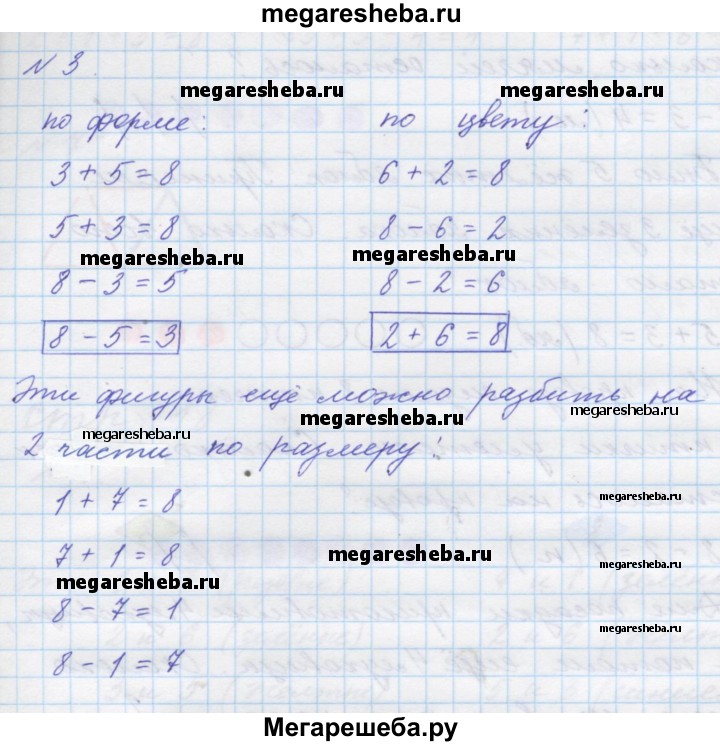 megaresheba.ru
N 3
megaresheba.ru megaresheba.ru
по форме: по цвету:
3 + 5 = 8 6 + 2 = 8
5 + 3 = 8 8 - 6 = 2
megaresheba.ru megaresheba.ru
8 - 3 = 5 8 - 2 = 6
8 - 5 = 3 2 + 6 = 8
Эти фигуры ещё можно разбить на
megaresheba.ru megaresheba.ru megaresheba.ru
2 части по размеру:
1 + 7 = 8
megaresheba.ru
7 + 1 = 8
megaresheba.ru megaresheba.ru
megaresheba.ru
8 - 7 = 1
megaresheba.ru
8 - 1 = 7
Мегарешеба.ру